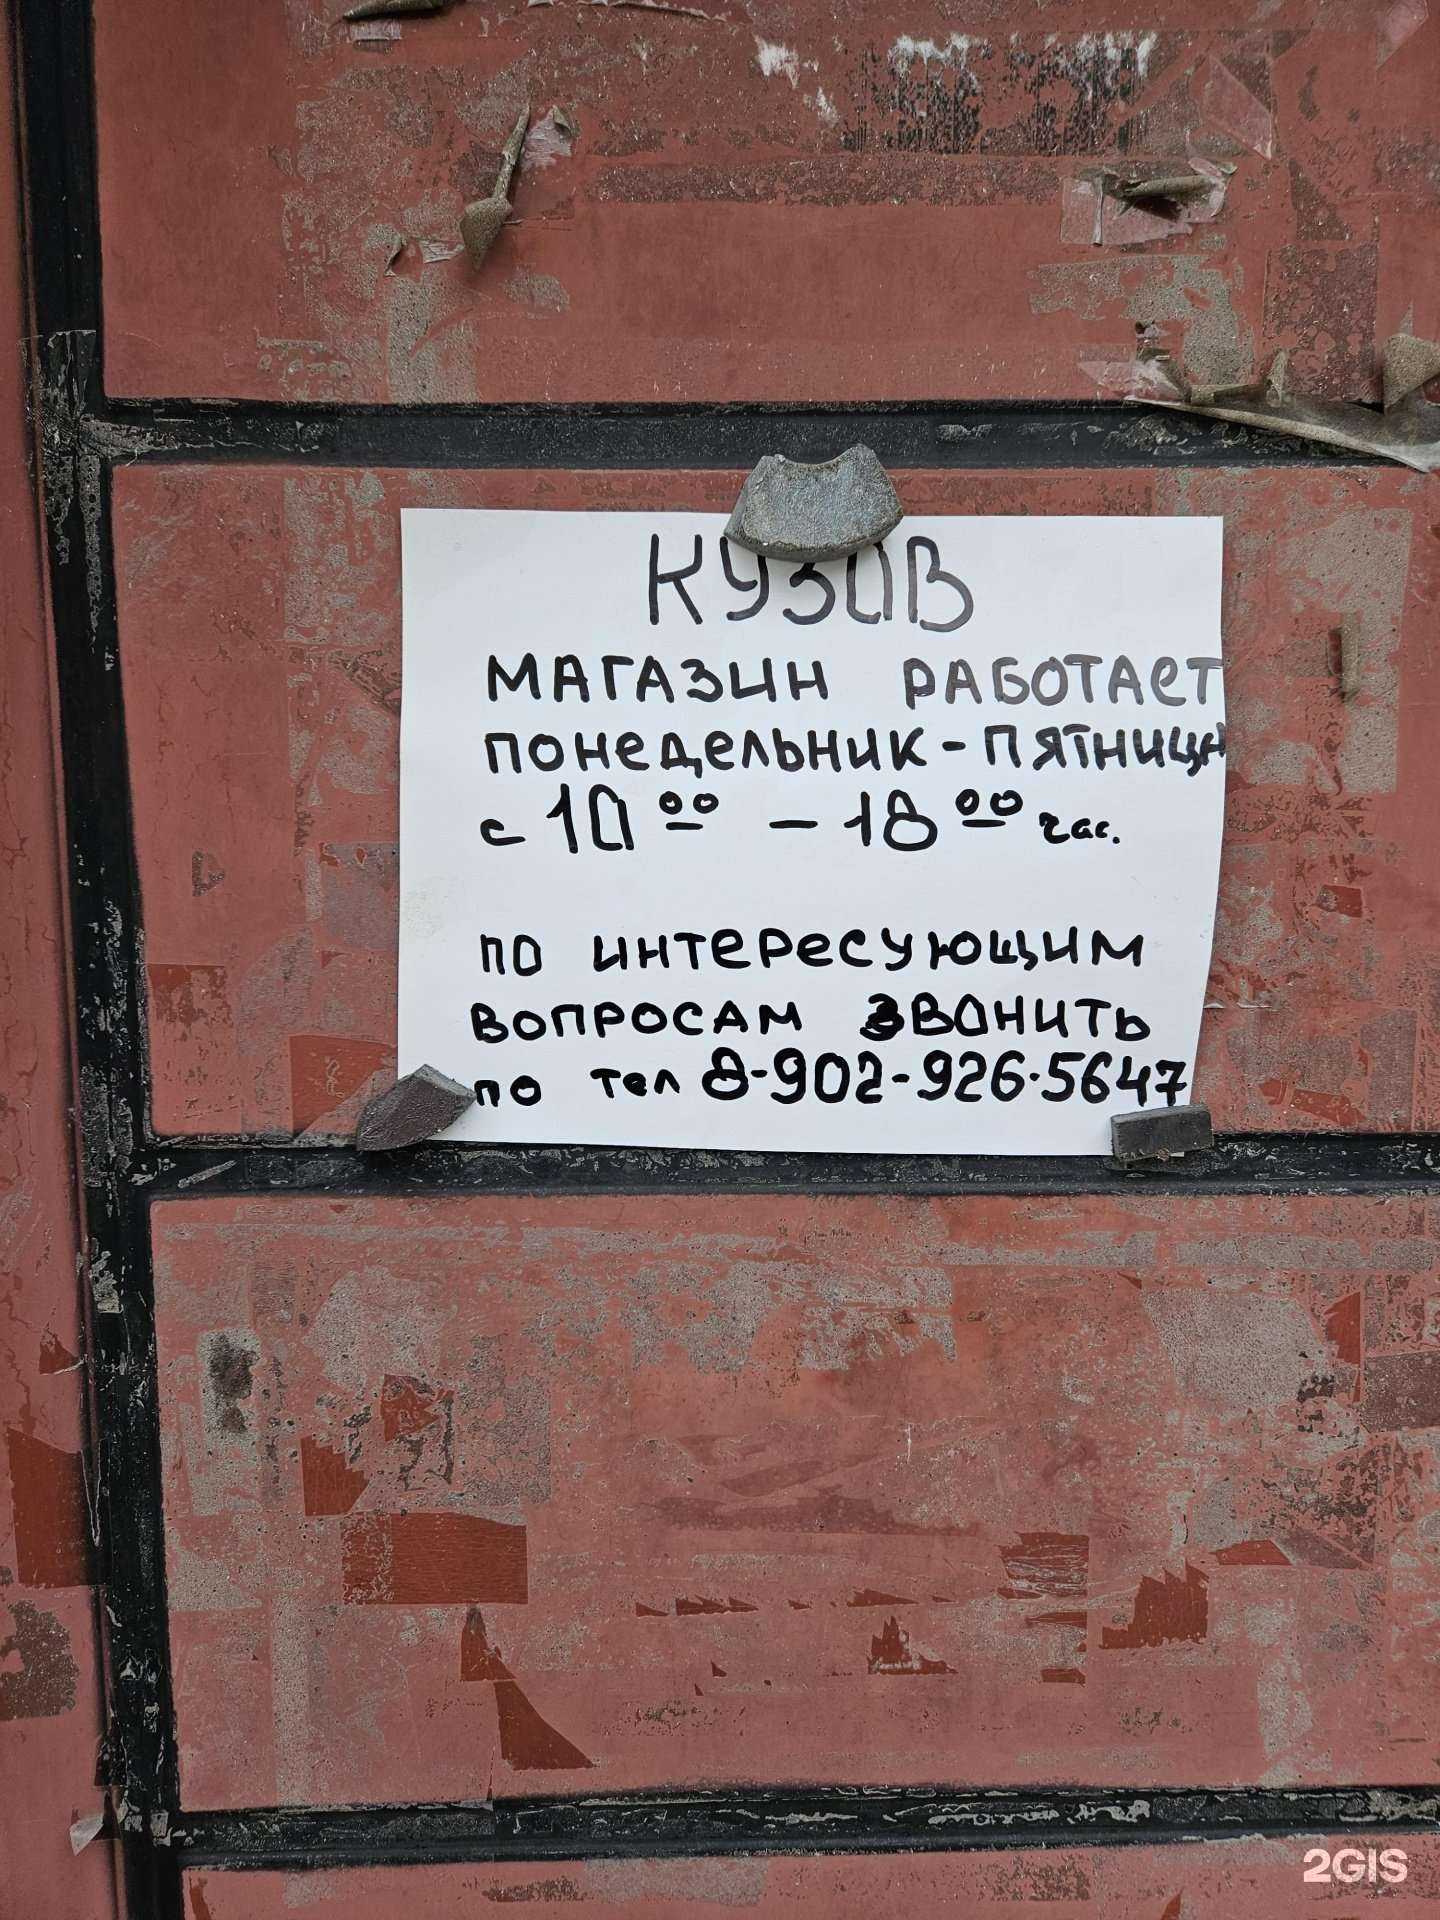 КУЗОВ
МАГАЗИН РАБОТАЕТ
ПОНЕДЕЛЬНИК - ПЯТНИЦА
с 10 00 - 18 00 час.
ПО ИНТЕРЕСУЮЩИМ
ВОПРОСАМ ЗВОНИТЬ
ПО тел 8-902-926-5647
2GIS